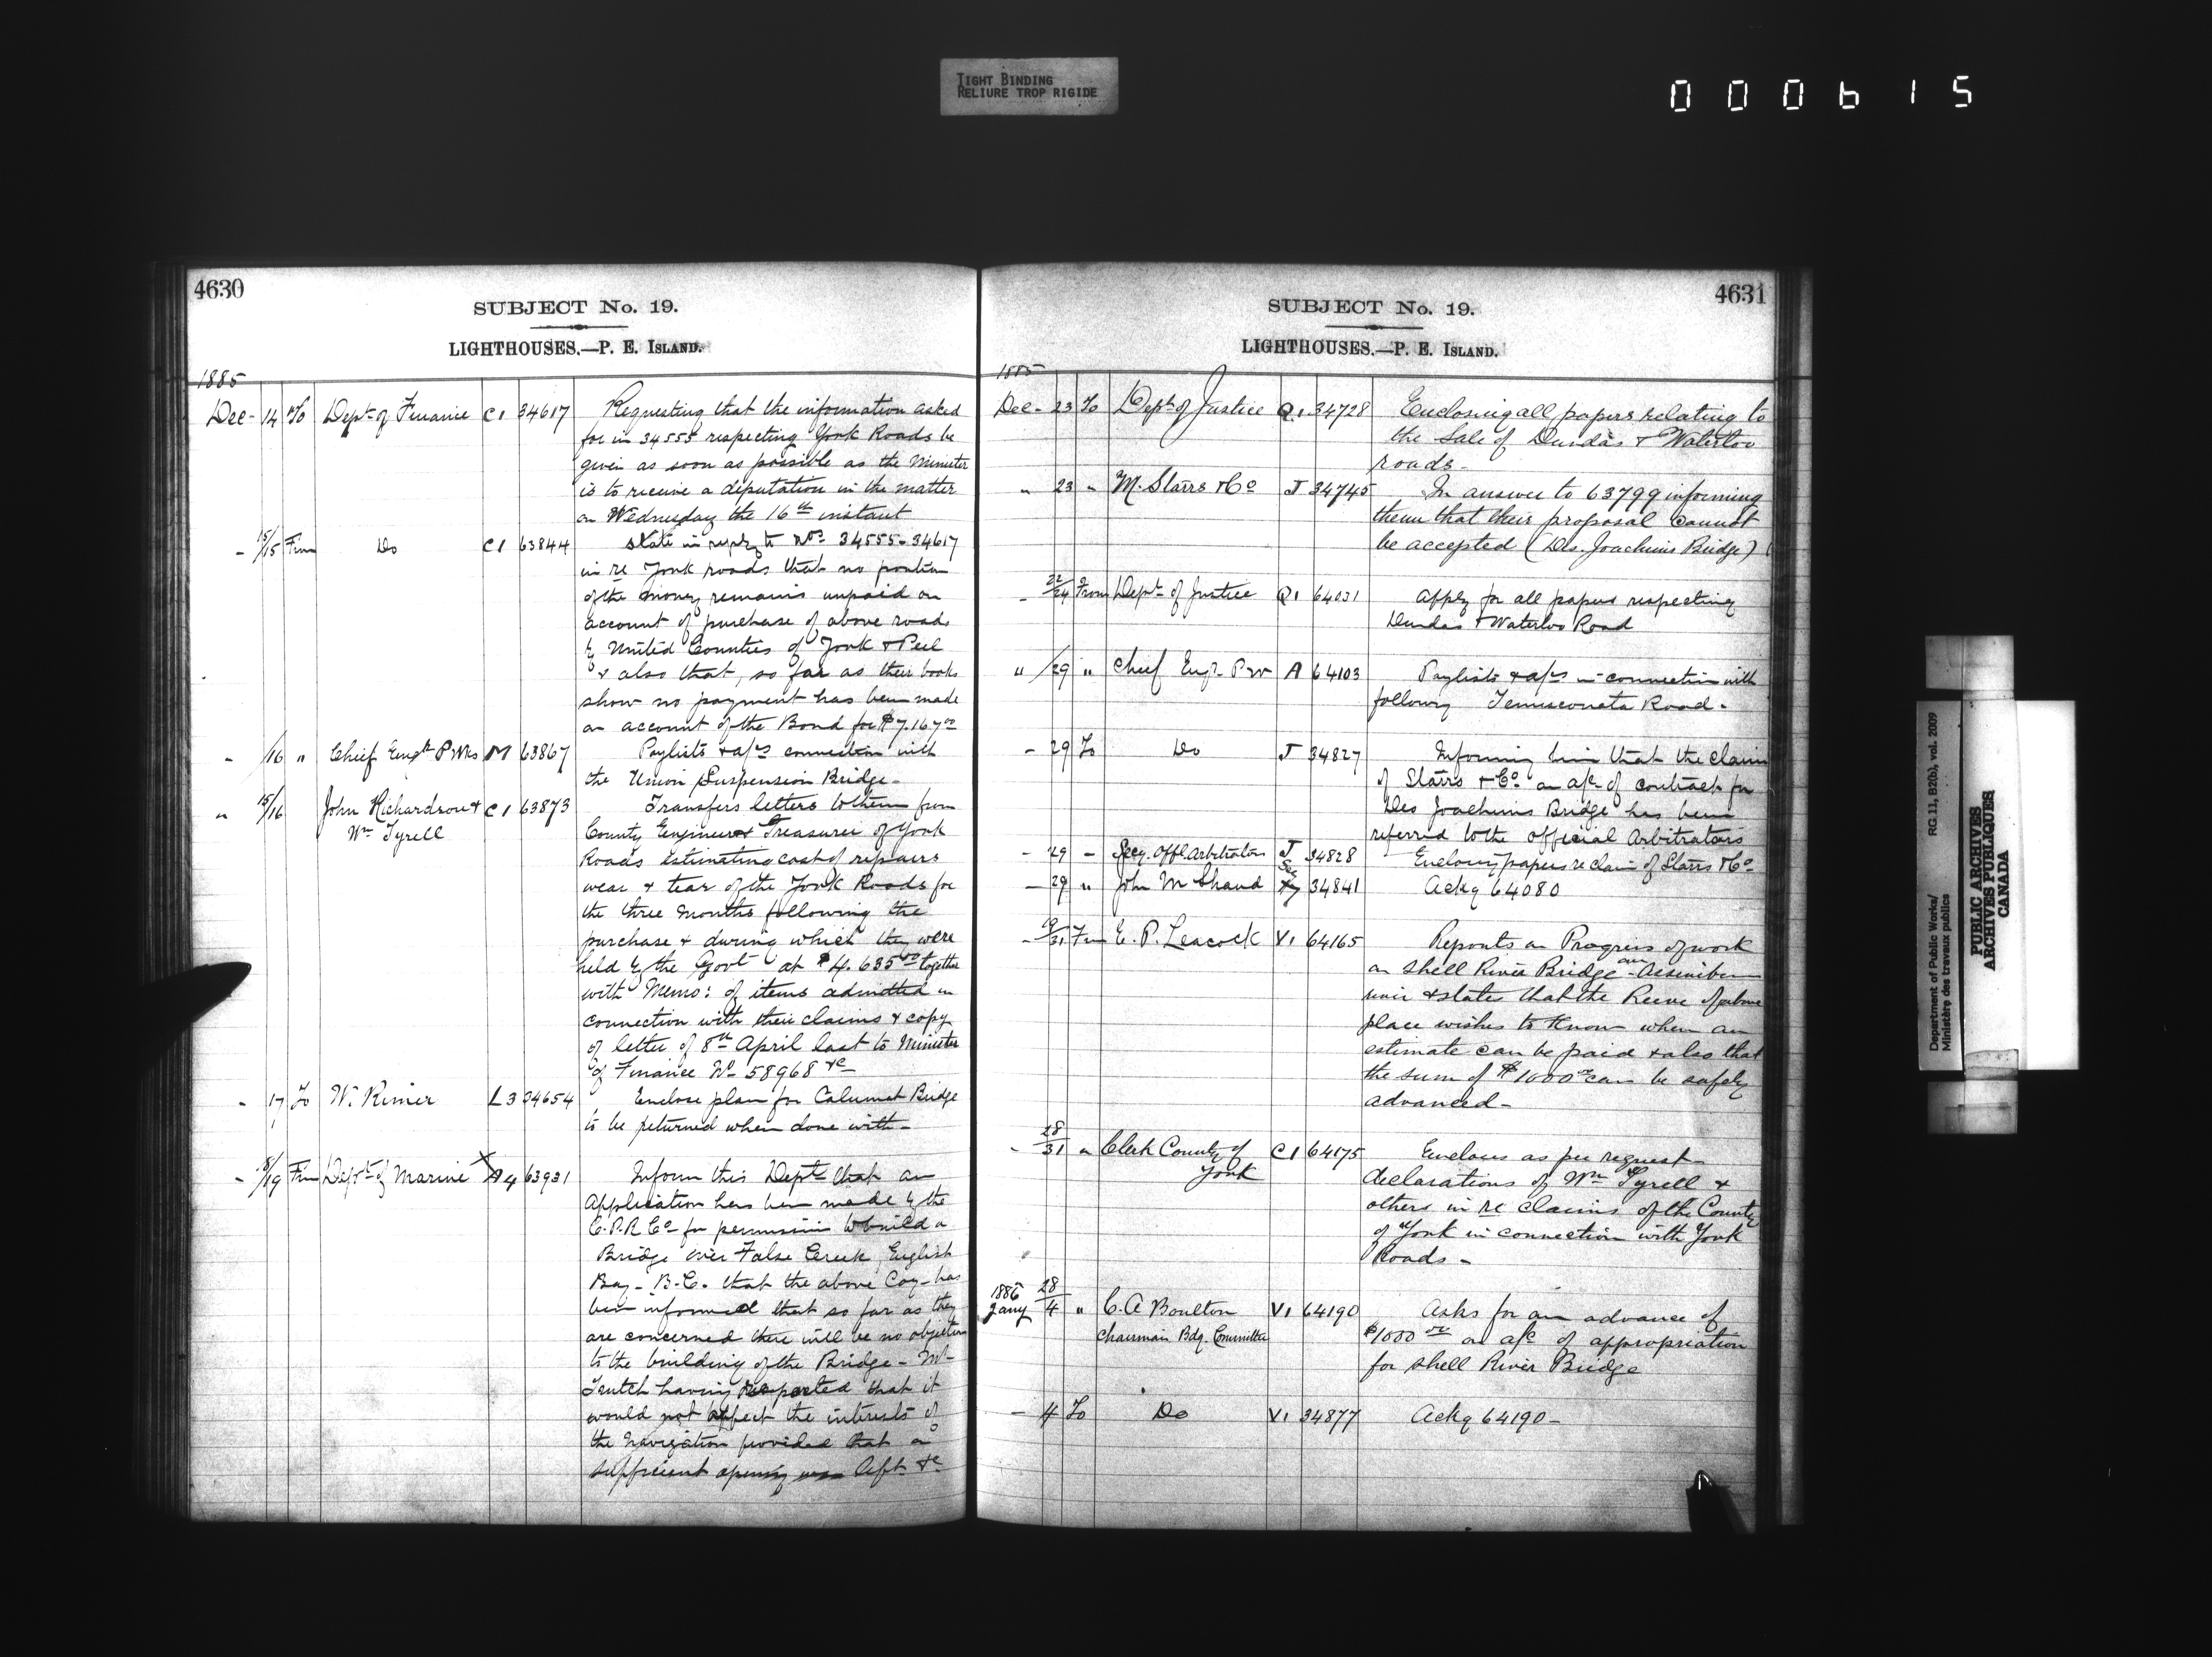 TIGHT BINDING
RELIURE TROP RIGIDE
000615
4630
SUBJECT No. 19.
LIGHTHOUSES.—P. E. ISLAND.
1885
Dec - 14 To Dept of Finance C1 34617 Requesting that the information asked
for in 34555 respecting York Roads be
given as soon as possible as the Minister
is to receive a deputation in the matter
on Wednesday the 16th instant
- 15/15 Frm Do C1 63844 State in reply to Nos 34555-34617
in re York roads that no portion
of the money remains unpaid on
account of purchase of above roads
by United Counties of York & Peel
& also that, so far as their books
show no payment has been made
on account of the Bond for $7.167 00
- /16 " Chief Engr P Wks M 63867 Paylists & a/cs connection with
the Union Suspension Bridge -
" 15/16 John Richardson & C1 63873 Transfers letters to them from
Wm Tyrell
County Engineer & Treasurer of York
Roads estimating cost of repairs
wear & tear of the York Roads for
the three months following the
purchase & during which they were
held by the Govt at $4.635 00 together
with Memo: of items admitted in
connection with their claims & copy
of letter of 8th April last to Minister
of Finance No 58968 &c
- 17 To W. Rimer L3 34654 Enclose plan for Calumet Bridge
to be returned when done with -
- 18/19 Frm Dept of Marine X A4 63931 Inform this Dept that an
application has been made by the
C.P.R Co for permission to build a
Bridge over False Creek, English
Bay - B.C. that the above Coy - has
been informed that so far as they
are concerned there will be no objection
to the building of the Bridge - Mr
Trutch having reported that it
would not affect the interests of
the navigation provided that a
sufficient opening was left &c
4631
SUBJECT No. 19.
LIGHTHOUSES.—P. E. ISLAND.
1885
Dec - 23 To Dept of Justice Q1 34728 Enclosing all papers relating to
the Sale of Dundas & Waterloo
roads -
" 23 " M. Starrs & Co J 34745 In answer to 63799 informing
them that their proposal cannot
be accepted (Des Joachims Bridge)
- 22/24 From Dept of Justice Q1 64031 Apply for all papers respecting
Dundas & Waterloo Road
" /29 " Chief Engr P W A 64103 Paylists & a/cs in connection with
following Temiscouata Road -
- 29 To Do J 34827 Informing him that the claim
of Starrs & Co on a/c of contract for
Des Joachims Bridge has been
referred to the official Arbitrators
- 29 - Secy. Offl Arbitrators J 34828 Enclosing papers re claim of Starrs & Co
- 29 " John M Shand 34841 Ackg 64080
- 9/31 Frm E. P. Leacock V1 64165 Reports on Progress of work
on Shell River Bridge - Assiniboin
river & states that the Reeve of above
place wishes to know when an
estimate can be paid & also that
the sum of $1000 00 can be safely
advanced -
- 28/31 " Clerk County of C1 64175 Encloses as per request
York
declarations of Wm Tyrell &
others in re claims of the County
of York in connection with York
Roads -
1886
Jany 28/4 " C. A Boulton V1 64190 Asks for an advance of
Chairman Bdg. Committee
$1000 00 on a/c of appropriation
for Shell River Bridge
- 4 To Do V1 34877 Ackg 64190 -
Department of Public Works/
Ministère des travaux publics
RG 11, B2(b), vol. 2009
PUBLIC ARCHIVES
ARCHIVES PUBLIQUES
CANADA